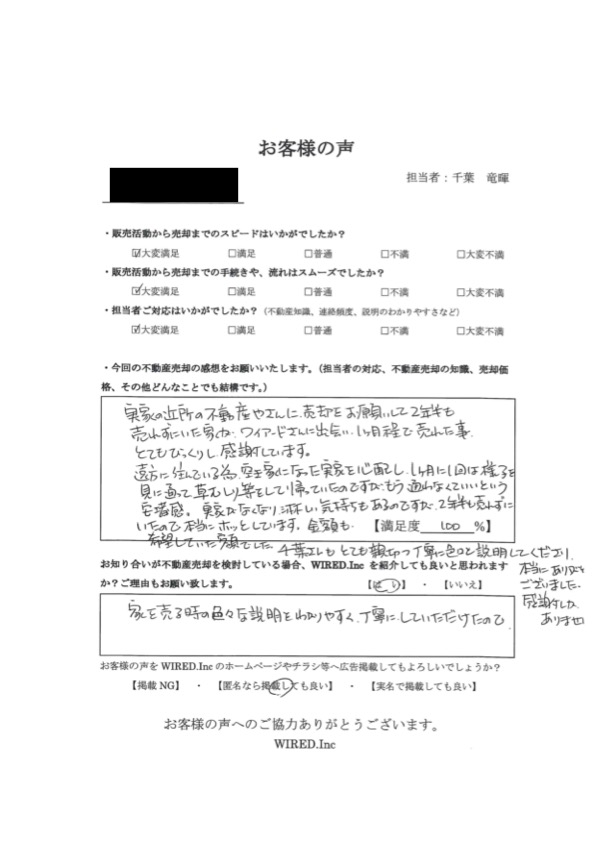 お客様の声
担当者：千葉　竜暉
・販売活動から売却までのスピードはいかがでしたか？
☑大変満足　□満足　□普通　□不満　□大変不満
・販売活動から売却までの手続きや、流れはスムーズでしたか？
☑大変満足　□満足　□普通　□不満　□大変不満
・担当者ご対応はいかがでしたか？（不動産知識、連絡頻度、説明のわかりやすさなど）
☑大変満足　□満足　□普通　□不満　□大変不満
・今回の不動産売却の感想をお願いいたします。（担当者の対応、不動産売却の知識、売却価
格、その他どんなことでも結構です。）
実家の近所の不動産やさんに、売却をお願いして2年半も
売れずにいた家が、ワイアードさんに出会い、1ヶ月程で売れた事、
とてもびっくりし感謝しています。
遠方に住んでいる為、空き家になった実家を心配し、1ヶ月に1回は様子を
見に通って草むしり等をして帰っていたのですが、もう通わなくていいという
安堵感。実家がなくなり淋しい気持ちもあるのですが、2年半も売れずに
いたので本当にホッとしています。金額も
【満足度　100　％】
希望していた額でした。千葉さんもとても親切で丁寧に色々と説明してくださり、
本当にありがとう
ございました。
感謝しか
ありません
お知り合いが不動産売却を検討している場合、WIRED.Inc を紹介しても良いと思われます
か？ご理由もお願い致します。
【はい】　・　【いいえ】
家を売る時の色々な説明をわかりやすく、丁寧にしていただけたので
お客様の声を WIRED.Inc のホームページやチラシ等へ広告掲載してもよろしいでしょうか？
【掲載 NG】　・　【匿名なら掲載しても良い】　・　【実名で掲載しても良い】
お客様の声へのご協力ありがとうございます。
WIRED.Inc